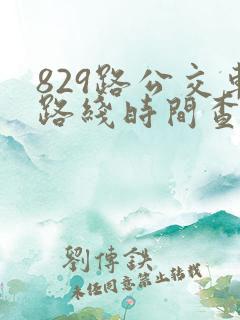 829路公交車
路綫時間查
劉傳鉄
未经同意禁止转载